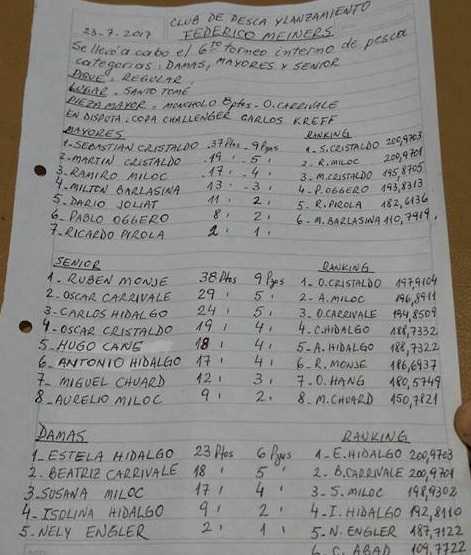 CLUB DE PESCA Y LANZAMIENTO
23-7-2017 FEDERICO MEINERS
Se llevó a cabo el 6to torneo interno de pesca
categorias: DAMAS, MAYORES Y SENIOR
PIQUE. REGULAR
LUGAR. SANTO TOMÉ
PIEZA MAYOR. MONCHOLO 8ptos. O. CARRIVALE
EN DISPUTA. COPA CHALLENGER CARLOS KREFF
MAYORES RANKING
1-SEBASTIAN CRISTALDO .37Ptos - 9Pzas 1-S.CRISTALDO 200,9703
2-MARTIN CRISTALDO .19 ' - 5 ' 2-R.MILOC 200,9701
3-RAMIRO MILOC .17 ' - 4 ' 3-M.CRISTALDO 195,8705
4-MILTON BARLASINA 13 ' - 3 ' 4-P.OGGERO 193,8313
5-DARIO JOLIAT 11 ' 2 ' 5-R.PIROLA 182,6136
6-PABLO OGGERO 8 ' 2 ' 6-M.BARLASINA 110,7919
7-RICARDO PIROLA 2 ' 1 '
SENIOR RANKING
1-RUBEN MONJE 38 Ptos 9 Pzas 1-O.CRISTALDO 197,9104
2-OSCAR CARRIVALE 29 ' 5 ' 2-A.MILOC 196,8911
3-CARLOS HIDALGO 24 ' 5 ' 3-O.CARRIVALE 194,8509
4-OSCAR CRISTALDO 19 ' 4 ' 4-C.HIDALGO 188,7332
5-HUGO CANE 18 ' 4 ' 5-A.HIDALGO 188,7322
6-ANTONIO HIDALGO 17 ' 4 ' 6-R.MONJE 186,6937
7-MIGUEL CHUARD 12 ' 3 ' 7-O.HANG 180,5749
8-AURELIO MILOC 9 ' 2 ' 8-M.CHUARD 150,7821
DAMAS RANKING
1-ESTELA HIDALGO 23 Ptos 6 Pzas 1-E.HIDALGO 200,9703
2-BEATRIZ CARRIVALE 18 ' 5 ' 2-B.CARRIVALE 200,9701
3-SUSANA MILOC 17 ' 4 ' 3-S.MILOC 198,9302
4-ISOLINA HIDALGO 9 ' 2 ' 4-I.HIDALGO 192,8110
5-NELY ENGLER 2 ' 1 ' 5-N.ENGLER 187,7122
6-C.ABAD 109,7722